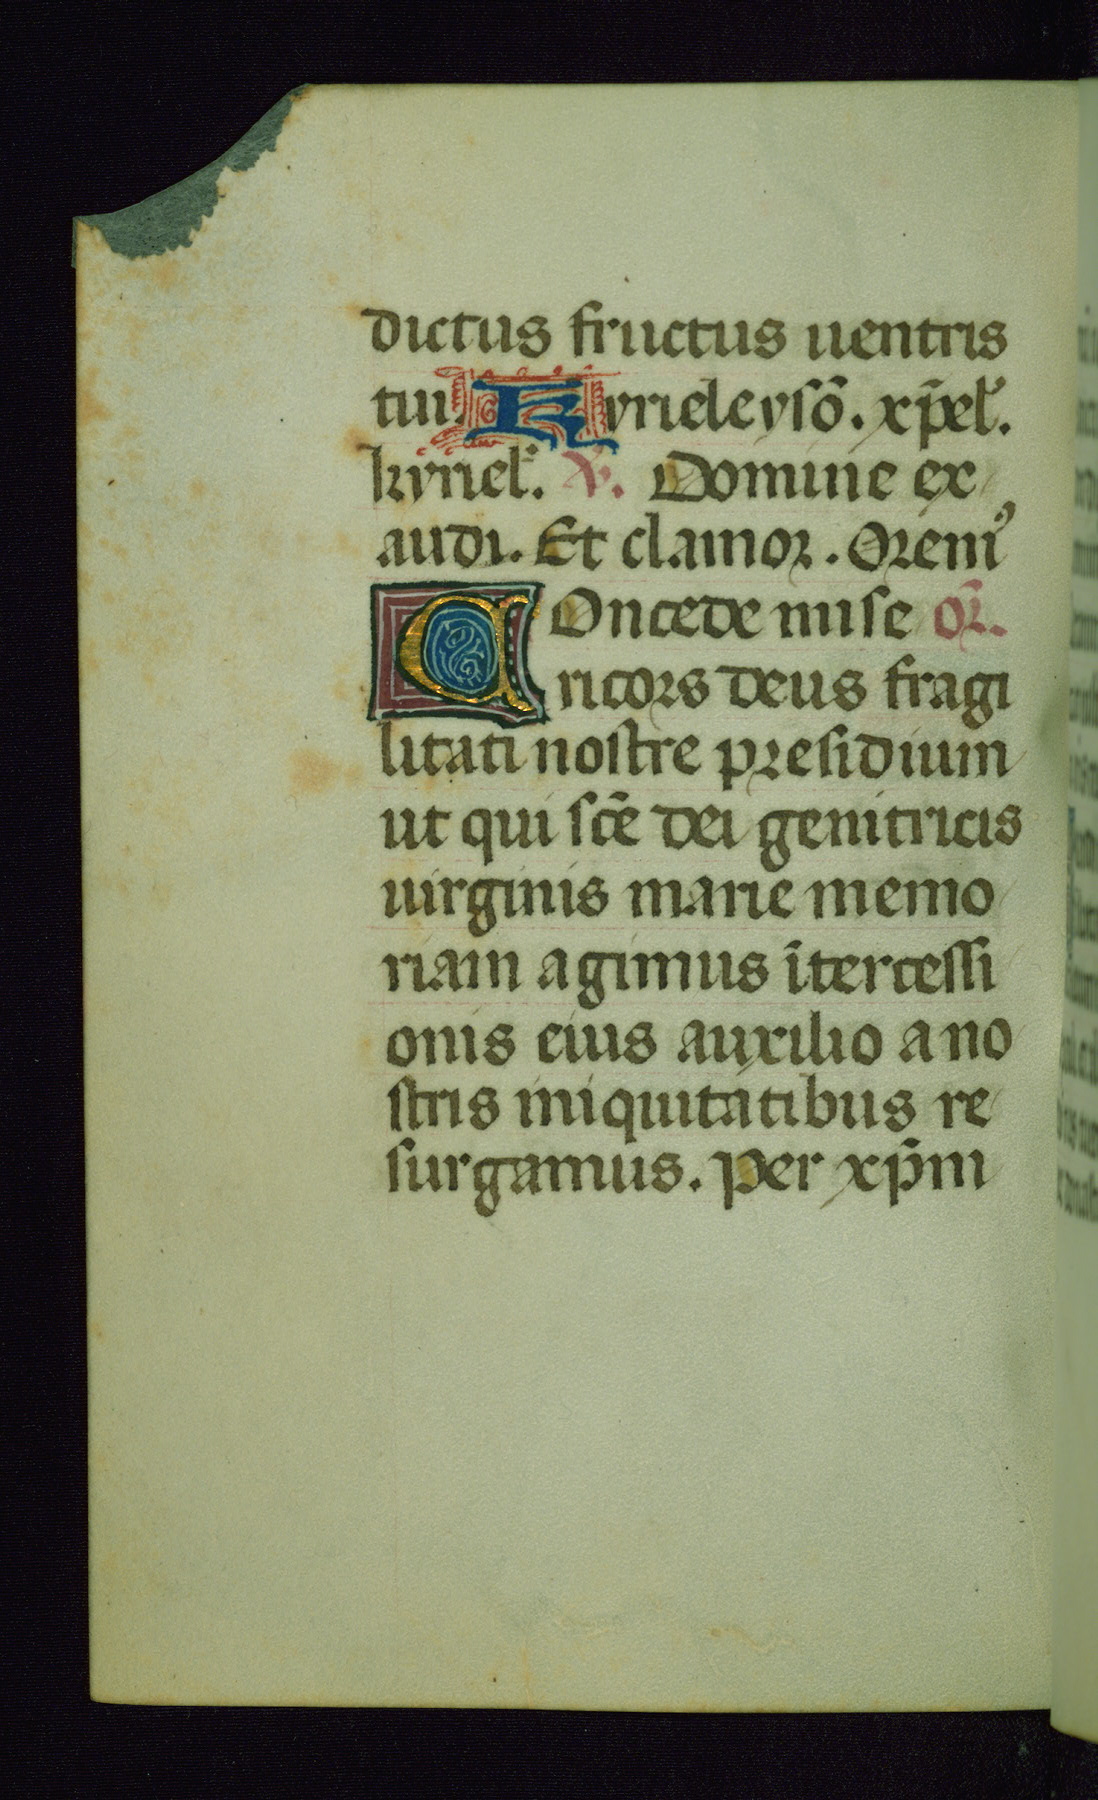 dictus fructus uentris
tui. Kyrieleysō. xp̄el'.
kyriel'. ℣. Domine ex
audi. Et clamor. Oremꝰ
COncede mise or̄.
ricors deus fragi
litati nostre presidium
ut qui sc̄e dei genitricis
uirginis marie memo
riam agimus ītercessi
onis eius auxilio a no
stris iniquitatibus re
surgamus. Per xp̄m